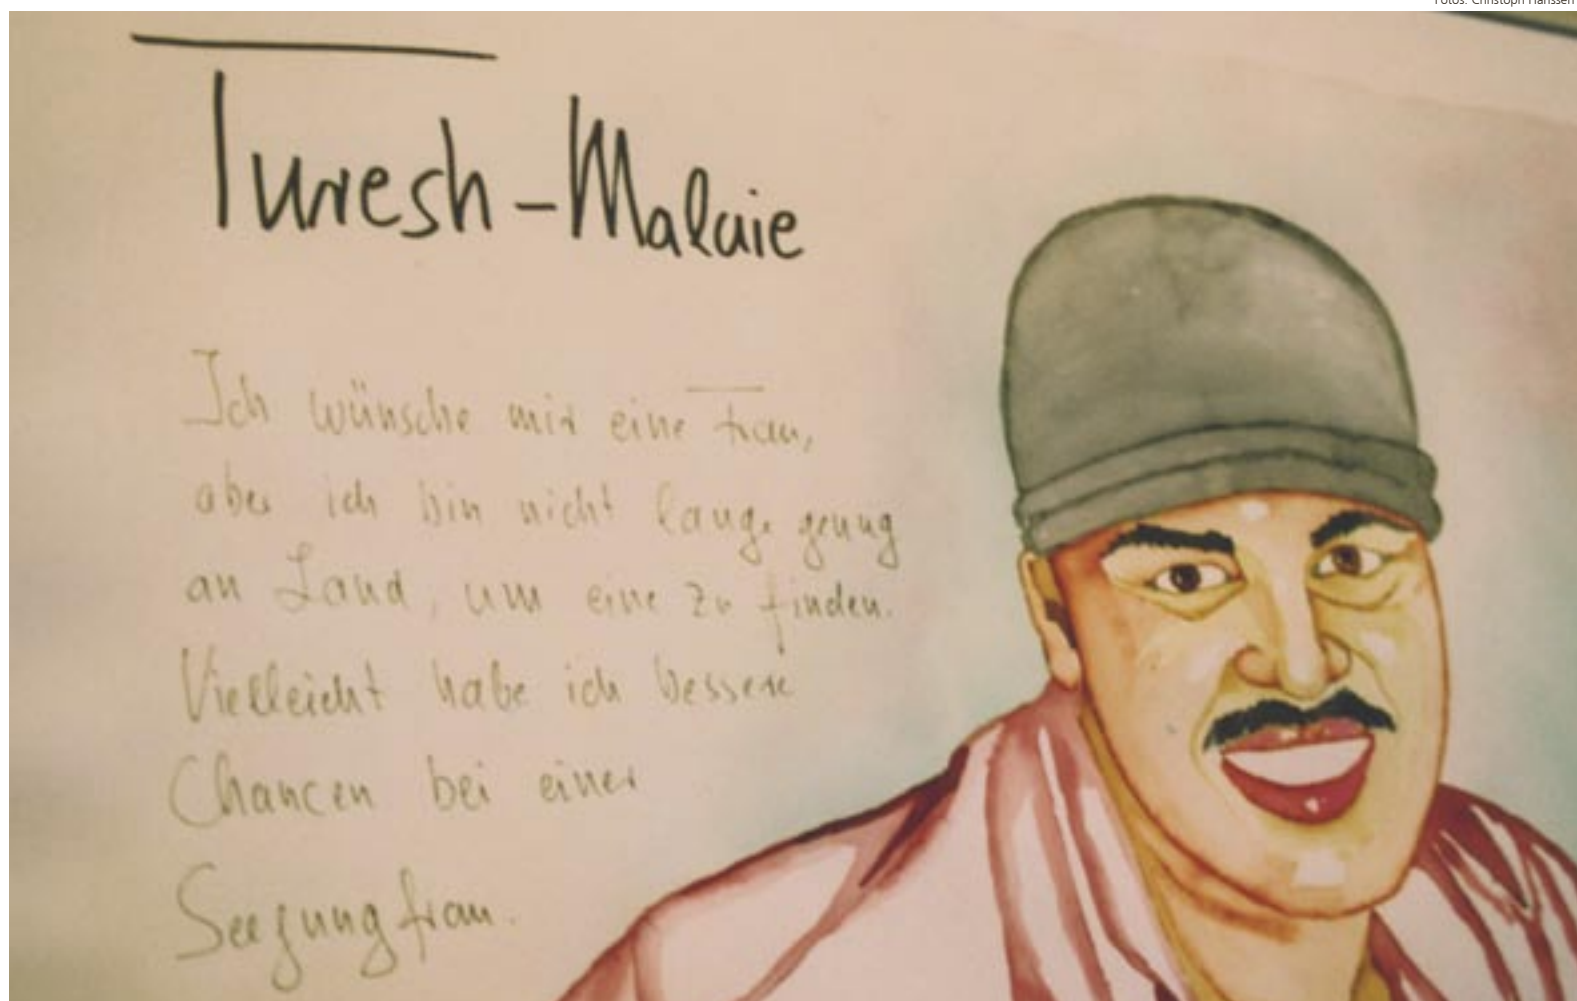 Fotos: Christoph Hanssen
Turesh-Malaie
Ich wünsche mir eine Frau,
aber ich bin nicht lange genug
an Land, um eine zu finden.
Vielleicht habe ich bessere
Chancen bei einer
Seejungfrau.